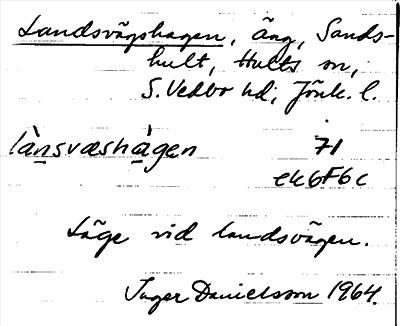 Landsvägshagen, äng, Sands-
hult, Hults sn,
S. Vedbo hd, Jönk. l.
lànsvæshàgen 71
ek6F6c
Läge vid landsvägen.
Inger Danielsson 1964.